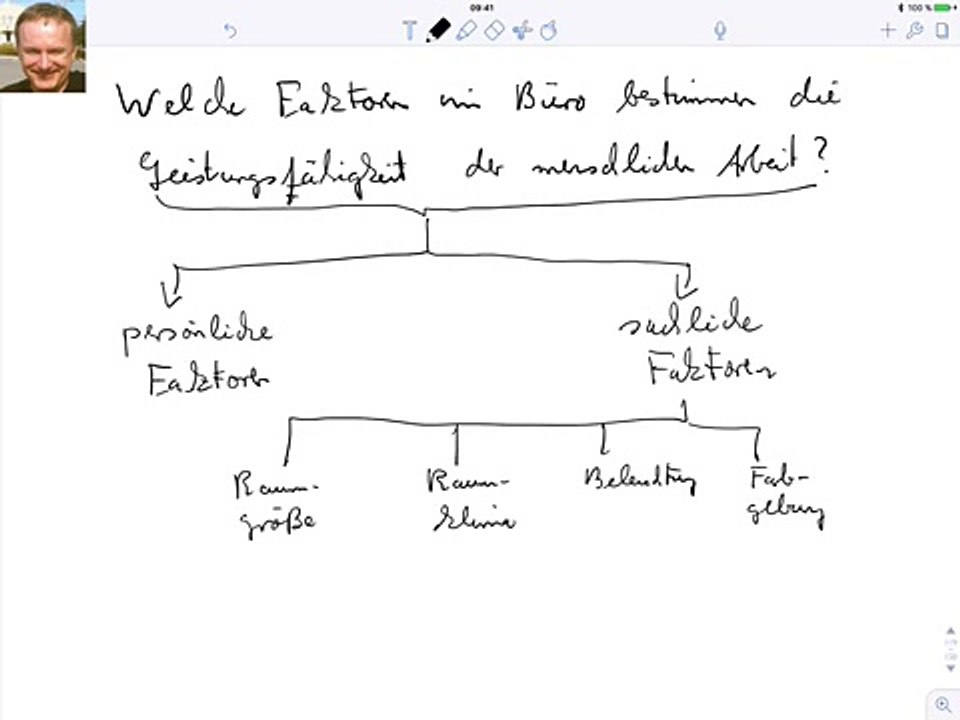 09:41
100 %
T
Welche Faktoren im Büro bestimmen die
Leistungsfähigkeit der menschlichen Arbeit?
persönliche
Faktoren
sachliche
Faktoren
Raum-
größe
Raum-
klima
Beleuchtung
Farb-
gebung